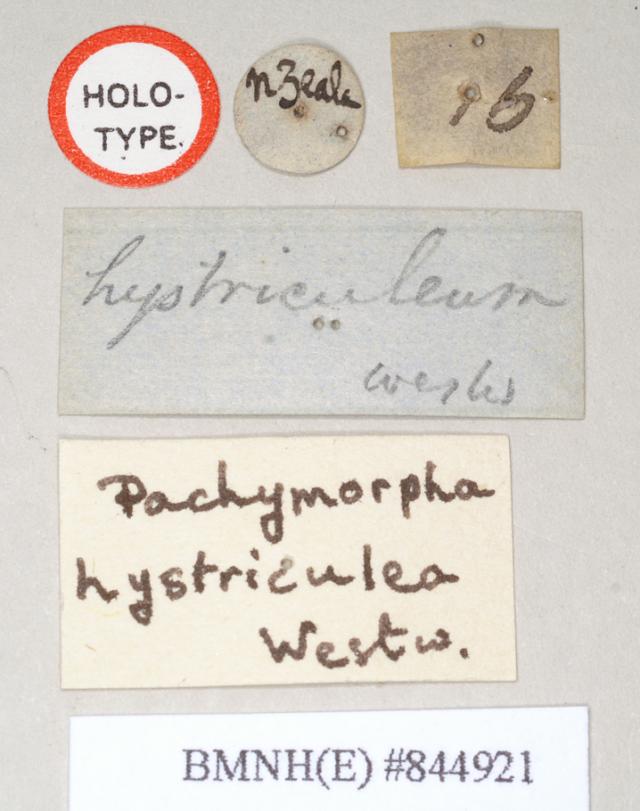 HOLO-
TYPE.
n Zeala
16
hystriculeum
westw
Pachymorpha
hystriculea
Westw.
BMNH(E) #844921